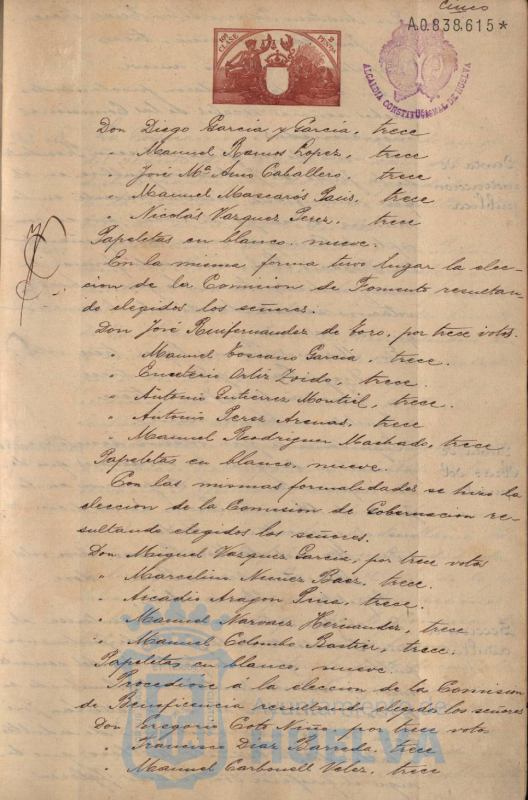 Cinco
A0.838.615*
10ª CLASE 2 PESETAS
ALCALDIA CONSTITUCIONAL DE HUELVA
Don Diego Garcia y Garcia, trece
" Manuel Ramos Lopez, trece
" José Mª Amo Caballero, trece
" Manuel Mascarós Pais, trece
" Nicolás Vazquez Perez, trece
Papeletas en blanco, nueve.
En la misma forma tuvo lugar la elec-
cion de la Comision de Fomento resultan-
do elegidos los señores.
Don José Renfernandez de Toro, por trece votos.
" Manuel Toscano Garcia, trece.
" Emeterio Ortiz Zoido, trece.
" Antonio Gutierrez Montiel, trece.
" Antonio Perez Arenas, trece.
" Manuel Rodriguez Machado, trece
Papeletas en blanco, nueve.
Con las mismas formalidades se hizo la
eleccion de la Comision de Gobernacion re-
sultando elegidos los señores.
Don Miguel Vazquez Garcia, por trece votos
" Marcelino Nuñez Baez, trece.
" Arcadio Aragon Pina, trece.
" Manuel Narvaez Hernandez, trece
" Manuel Colombo Bastier, trece.
Papeletas en blanco, nueve.
Procediose á la eleccion de la Comision
de Beneficencia resultando elegidos los señores
Don Gregorio Coto Niño, por trece votos
" Francisco Diaz Barreda, trece
" Manuel Carbonell Velez, trece
HUELVA